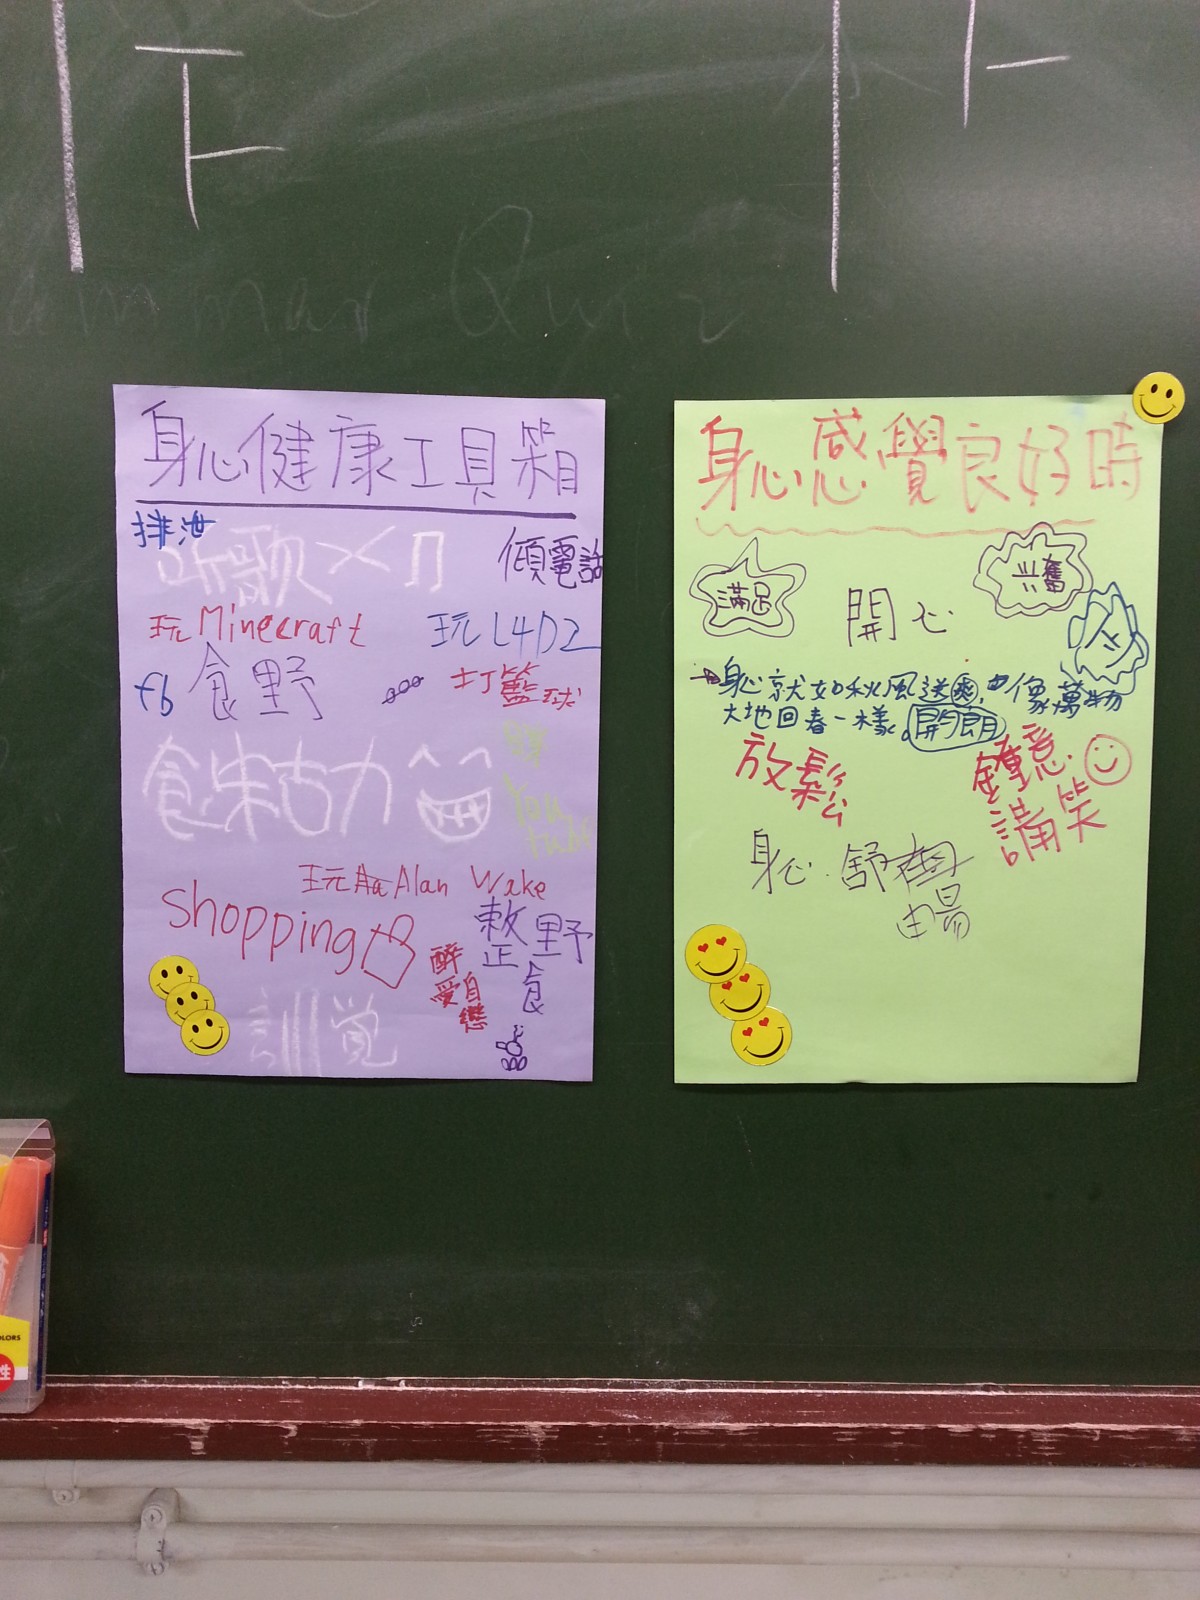 Quiz
身心健康工具箱
排泄
听歌
傾電話
玩Minecraft
玩L4D2
fb
食野
打籃球
食朱古力
You
tube
玩Aa Alan Wake
shopping
整野
食
醉
愛自
戀
訓覚
身心感覺良好時
滿足
開心
興奮
身心就如秋風送爽,也像萬物
大地回春一樣。開朗
放鬆
鐘意
講笑
身心舒暢
暢
OLORS
性